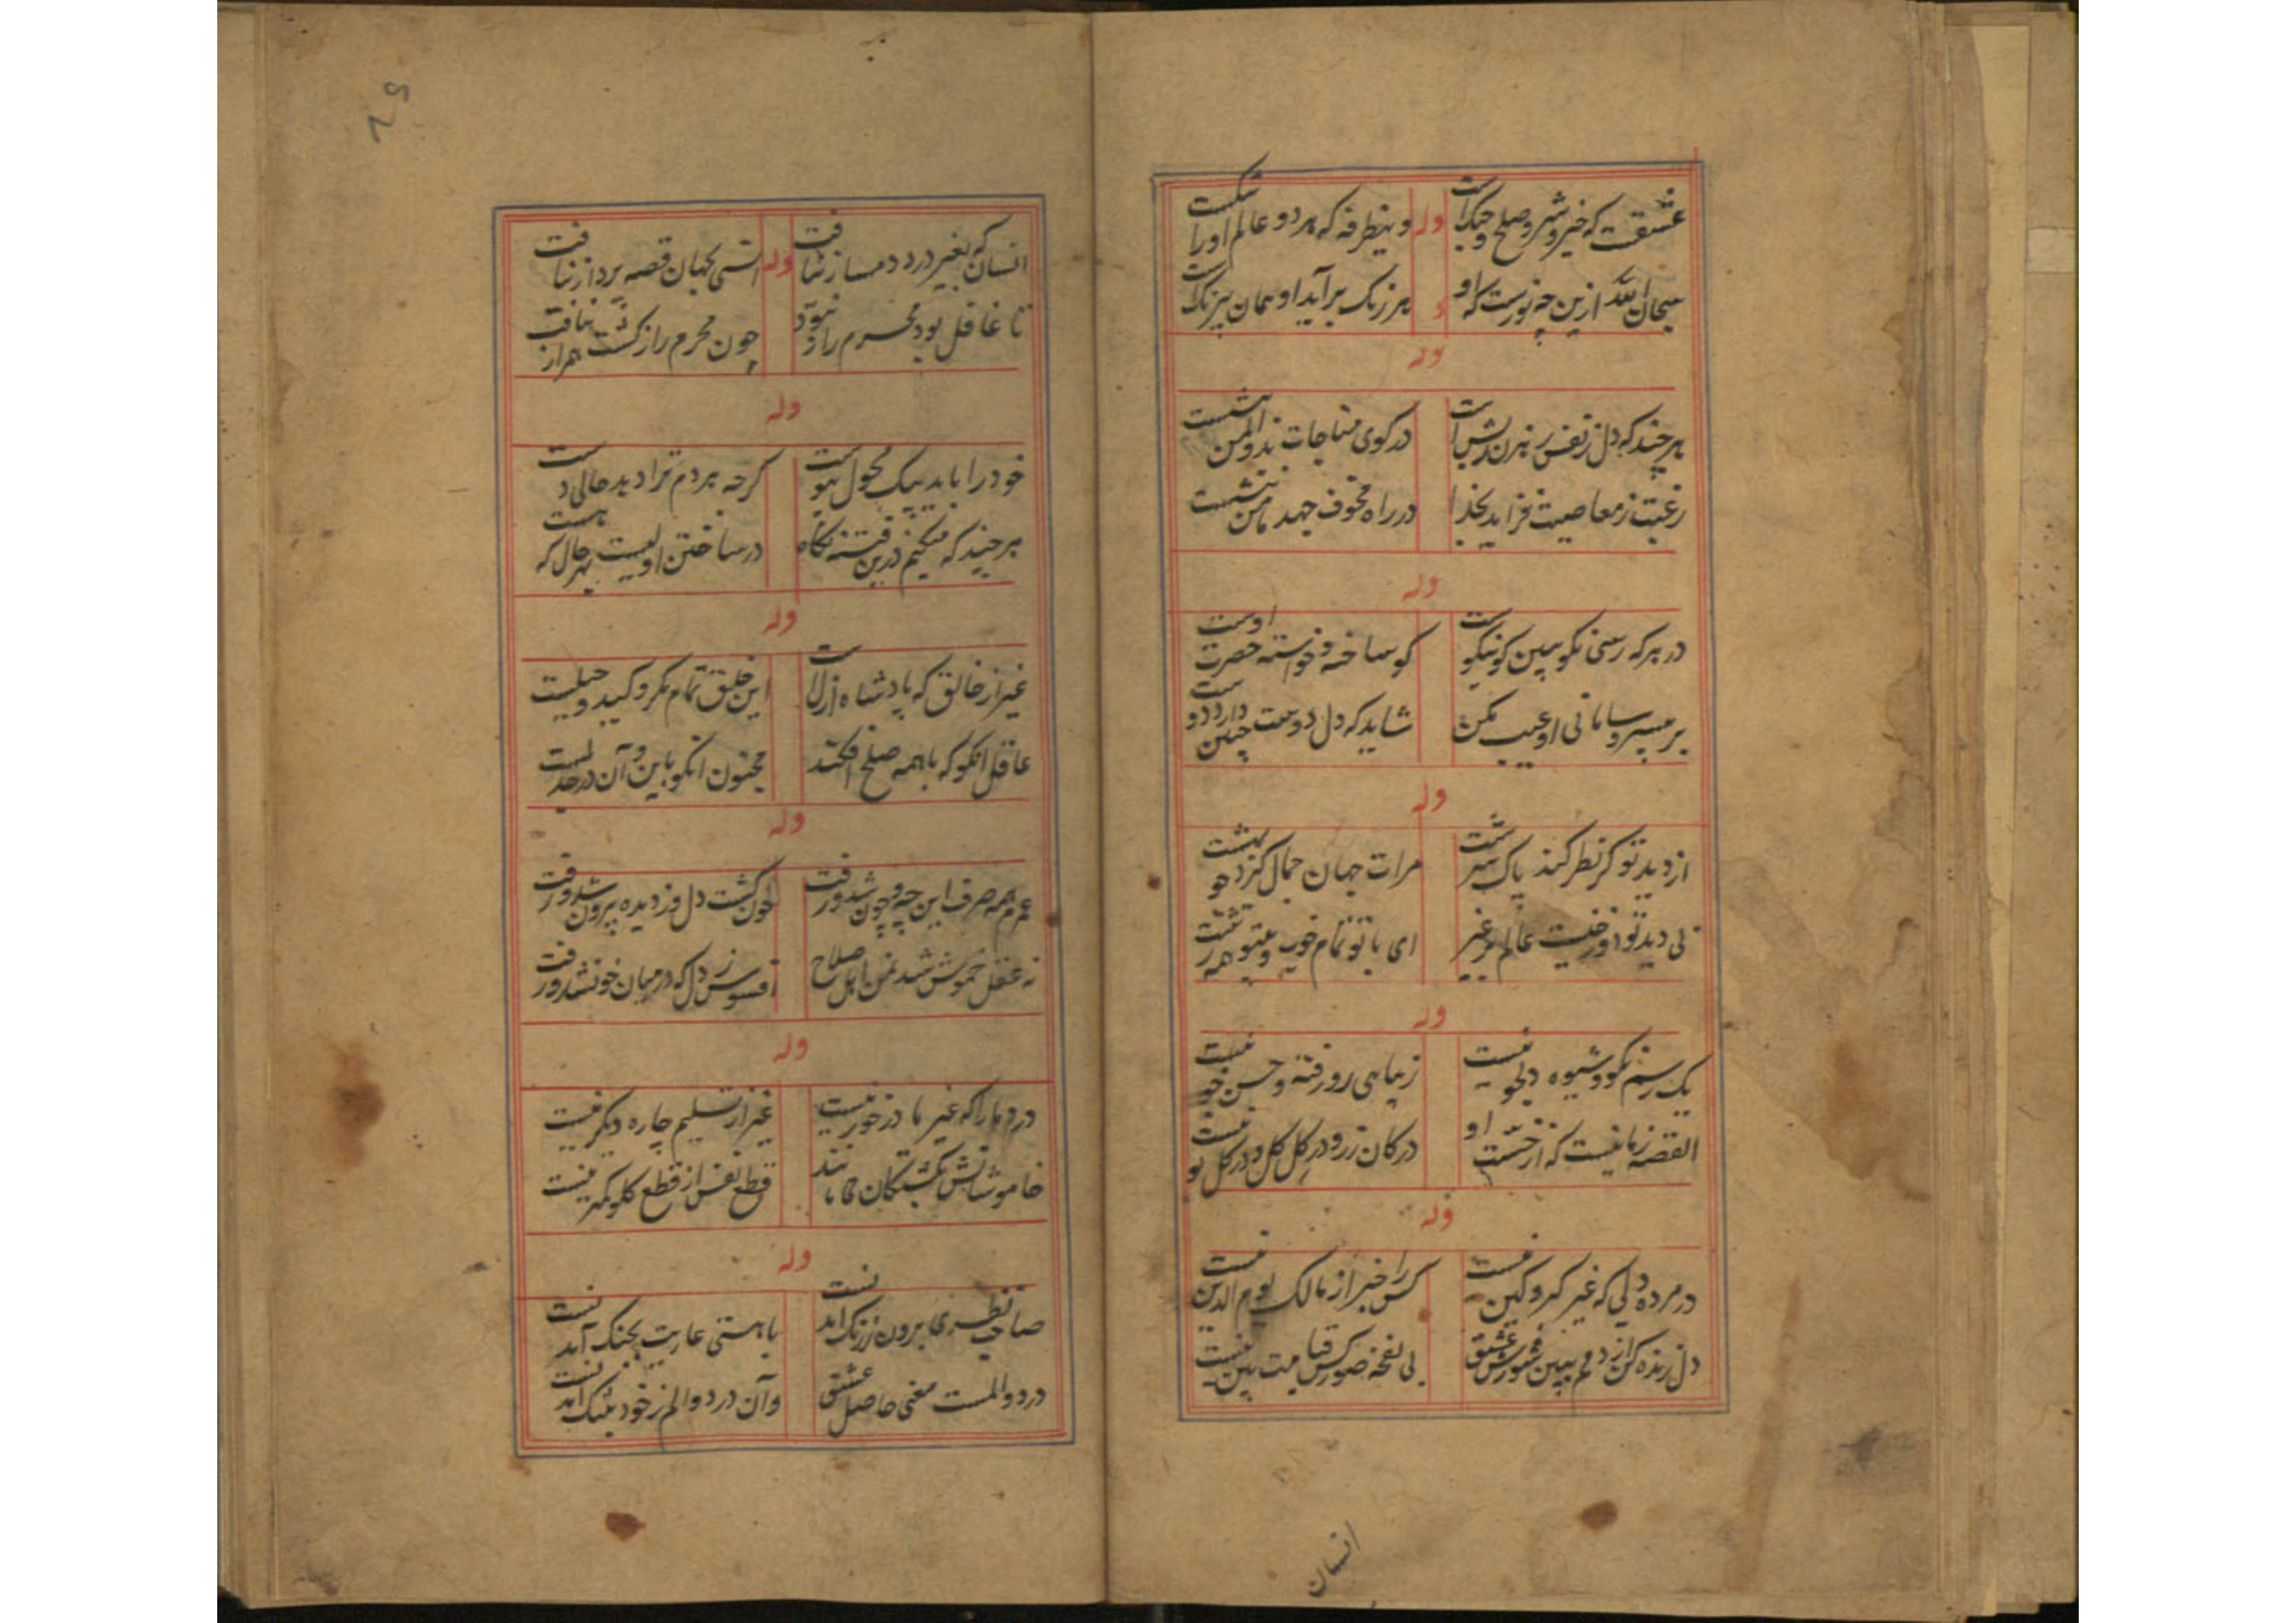 عشقست که خیر و شر و صلح و جنگ است
وله
وینطرفه که هر دو عالم او را تنگست
سبحان الله ازین چه نورست که او
هر رنگ برآید او همان بیرنگ است
وله
هر چند که دل ز نفس رهزن ریش است
در کوی مناجات
رغبت ز معاصیت فزاید بخدا
در راه مخوف جهد
وله
در هر که رسی نکو ببین کو نیکوست
کو ساخته و خواسته حضرت اوست
بر بیسر و سامانی او عیب مکن
شاید که دل دوست چنین دارد دوست
وله
از دید تو گر نظر کند پاک سرشت
مرات جهان جمال گردد چو بهشت
بی دید تو عالم بر غیر
ای با تو تمام خوب و بیتو همه زشت
وله
یک رسم نکو و شیوه دلجو نیست
زیبایی رو رفته و حسن خو نیست
القصه زمانیست که از خست او
در کان زر و در گل گل و در گل بو نیست
وله
در مرده دلی که غیر کبر و کین نیست
کس را خبر از مالک یوم الدین نیست
دل زنده کن از دم ببین شورش عشق
بی نفخه صور کس قیامت بین نیست
انسان
انسان که بغیر درد دمساز نیافت
وله
انسی بجهان قصه پرداز نیافت
تا غافل بود محرم راز نبود
چون محرم راز گشت همراز نیافت
وله
خود را باید بیک تحول نیوست
گرچه بردم ترا دید حالی دست
هر چند که میکنم درین فتنه نگاه
در ساختن اولیست بهر حال که هست
وله
غیر از خالق که پادشاه ازلست
این خلق تمام مکر و کید و حیلست
عاقل انکو که با همه صلح افکند
مجنون انکو باین و آن در جدلست
وله
عمرم همه صرف این چه و چون شد و رفت
خون گشت دل و ز دیده بیرون شد و رفت
نه عقل خموش شد نه من اهل صلاح
افسوس ز دل که در میان خون شد و رفت
وله
درد ما را که غیر ما در خور نیست
غیر از تسلیم چاره دیگر نیست
خاموشانش بکشتکان میمانند
قطع نفس از قطع گلو کمتر نیست
وله
صاحب نظری برون ز رنگ آمد نیست
با هستی عاریت بجنگ آمد نیست
درد و المست معنی حاصل عشق
وآن درد و الم ز خود بتنگ آمد نیست